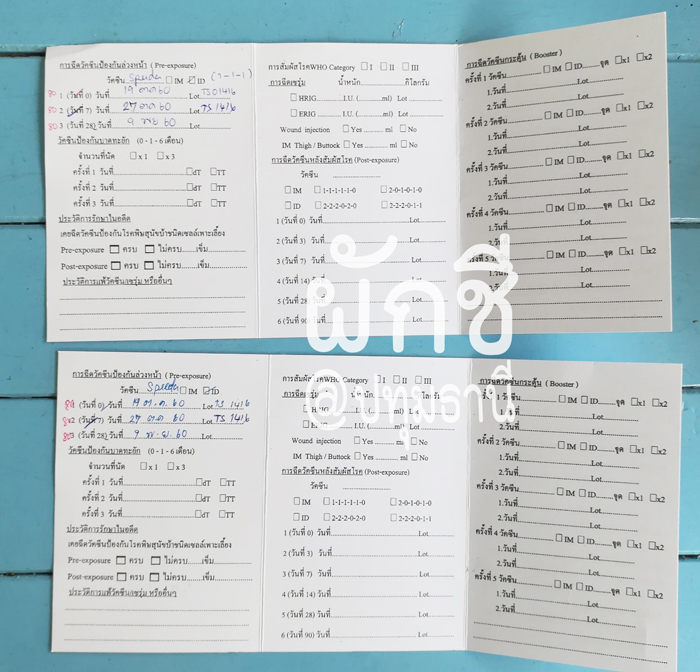 การฉีดวัคซีนป้องกันล่วงหน้า (Pre-exposure)
วัคซีน Speeda ☐IM ☑ID (1-1-1)
1 (วันที่ 0) วันที่ 19 ตค 60 Lot TS01416
2 (วันที่ 7) วันที่ 27 ตค 60 Lot TS 1416
3 (วันที่ 28) วันที่ 9 พย 60 Lot
วัคซีนป้องกันบาดทะยัก (0 - 1 - 6 เดือน)
จำนวนที่นัด ☐ x 1 ☐ x 3
ครั้งที่ 1 วันที่ ☐dT ☐TT
ครั้งที่ 2 วันที่ ☐dT ☐TT
ครั้งที่ 3 วันที่ ☐dT ☐TT
ประวัติการรักษาในอดีต
เคยฉีดวัคซีนป้องกันโรคพิษสุนัขบ้าชนิดเซลล์เพาะเลี้ยง
Pre-exposure ☐ ครบ ☐ ไม่ครบ เข็ม
Post-exposure ☐ ครบ ☐ ไม่ครบ เข็ม
ประวัติการแพ้วัคซีน/เซรุ่ม หรืออื่นๆ
การสัมผัสโรค WHO Category ☐ I ☐ II ☐ III
การฉีดเซรุ่ม น้ำหนัก กิโลกรัม
☐ HRIG I.U. ( ml) Lot
☐ ERIG I.U. ( ml) Lot
Wound injection ☐ Yes ml ☐ No
IM Thigh / Buttock ☐ Yes ml ☐ No
การฉีดวัคซีนหลังสัมผัสโรค (Post-exposure)
วัคซีน
☐ IM ☐ 1-1-1-1-1-0 ☐ 2-0-1-0-1-0
☐ ID ☐ 2-2-2-0-2-0 ☐ 2-2-2-0-1-1
1 (วันที่ 0) วันที่ Lot
2 (วันที่ 3) วันที่ Lot
3 (วันที่ 7) วันที่ Lot
4 (วันที่ 14) วันที่ Lot
5 (วันที่ 28) วันที่ Lot
6 (วันที่ 90) วันที่ Lot
การฉีดวัคซีนกระตุ้น ( Booster )
ครั้งที่ 1 วัคซีน ☐ IM ☐ ID จุด ☐x1 ☐x2
1.วันที่ Lot
2.วันที่ Lot
ครั้งที่ 2 วัคซีน ☐ IM ☐ ID จุด ☐x1 ☐x2
1.วันที่ Lot
2.วันที่ Lot
ครั้งที่ 3 วัคซีน ☐ IM ☐ ID จุด ☐x1 ☐x2
1.วันที่ Lot
2.วันที่ Lot
ครั้งที่ 4 วัคซีน ☐ IM ☐ ID จุด ☐x1 ☐x2
1.วันที่ Lot
2.วันที่ Lot
ครั้งที่ 5 วัคซีน ☐ IM ☐ ID จุด ☐x1 ☐x2
1.วันที่ Lot
2.วันที่ Lot
ผักชี
@ปทุมธานี
การฉีดวัคซีนป้องกันล่วงหน้า (Pre-exposure)
วัคซีน Speeda ☐IM ☑ID
1 (วันที่ 0) วันที่ 19 ต.ค. 60 Lot TS 1416
2 (วันที่ 7) วันที่ 27 ตค 60 Lot TS 1416
3 (วันที่ 28) วันที่ 9 พ.ย. 60 Lot
วัคซีนป้องกันบาดทะยัก (0 - 1 - 6 เดือน)
จำนวนที่นัด ☐ x 1 ☐ x 3
ครั้งที่ 1 วันที่ ☐dT ☐TT
ครั้งที่ 2 วันที่ ☐dT ☐TT
ครั้งที่ 3 วันที่ ☐dT ☐TT
ประวัติการรักษาในอดีต
เคยฉีดวัคซีนป้องกันโรคพิษสุนัขบ้าชนิดเซลล์เพาะเลี้ยง
Pre-exposure ☐ ครบ ☐ ไม่ครบ เข็ม
Post-exposure ☐ ครบ ☐ ไม่ครบ เข็ม
ประวัติการแพ้วัคซีน/เซรุ่ม หรืออื่นๆ
การสัมผัสโรค WHO Category ☐ I ☐ II ☐ III
การฉีดเซรุ่ม น้ำหนัก
HRIG I.U. (
ERIG I.U. (
Wound injection ☐ Yes ml ☐ No
IM Thigh / Buttock ☐ Yes ml ☐ No
การฉีดวัคซีนหลังสัมผัสโรค (Post-exposure)
วัคซีน
☐ IM ☐ 1-1-1-1-1-0 ☐ 2-0-1-0-1-0
☐ ID ☐ 2-2-2-0-2-0 ☐ 2-2-2-0-1-1
1 (วันที่ 0) วันที่ Lot
2 (วันที่ 3) วันที่ Lot
3 (วันที่ 7) วันที่ Lot
4 (วันที่ 14) วันที่ Lot
5 (วันที่ 28) วันที่ Lot
6 (วันที่ 90) วันที่ Lot
การฉีดวัคซีนกระตุ้น ( Booster )
☐ IM ☐ ID จุด ☐x1 ☐x2
1.วันที่ Lot
2.วันที่ Lot
☐ IM ☐ ID จุด ☐x1 ☐x2
1.วันที่ Lot
2.วันที่ Lot
ครั้งที่ 3 วัคซีน ☐ IM ☐ ID จุด ☐x1 ☐x2
1.วันที่ Lot
2.วันที่ Lot
ครั้งที่ 4 วัคซีน ☐ IM ☐ ID จุด ☐x1 ☐x2
1.วันที่ Lot
2.วันที่ Lot
ครั้งที่ 5 วัคซีน ☐ IM ☐ ID จุด ☐x1 ☐x2
1.วันที่ Lot
2.วันที่ Lot